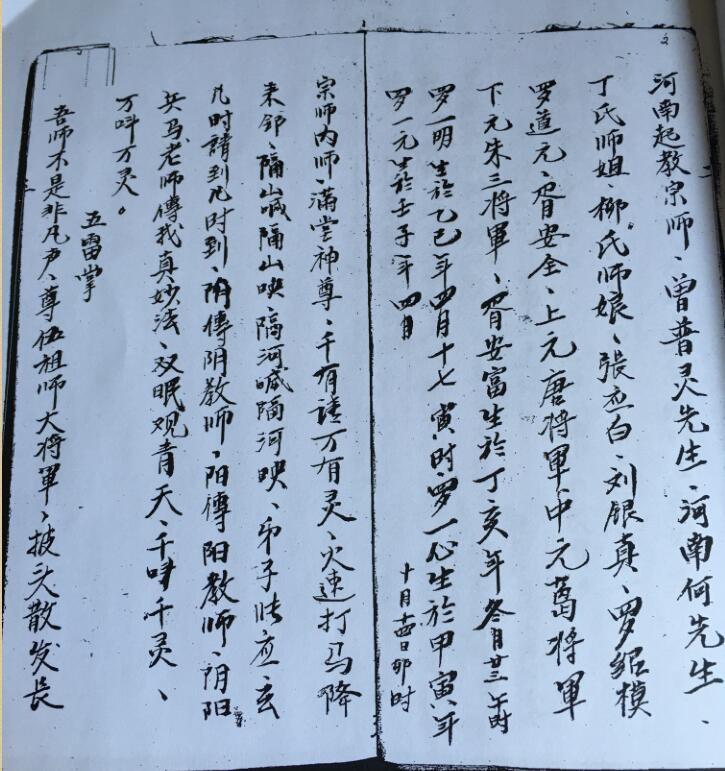 2
河南起教宗师、曾普灵先生、河南何先生、
丁氏师姐、柳氏师娘、張应白、刘银真、罗紹模
罗道元、胥安全、上元唐将軍中元葛将軍
下元朱三将軍、胥安富生於丁亥年冬月廿三午时
罗一明生於乙巳年四月十七寅时、罗一心生於甲寅年
十月十四日卯时
罗一元生於壬子年四月
宗师内师、满堂神尊、千有請万有灵、火速打马降
来邻、隔山喊隔山映、隔河喊隔河映、弟子張应玄
几时請到几时到、阴傳阴教师、阳傳阳教师、阴阳
兵马老师傳我真妙法、双眠观青天、千呌千灵、
万呌万灵。
五雷掌
吾师不是非凡声、尊伍祖师大将軍、披头散发长